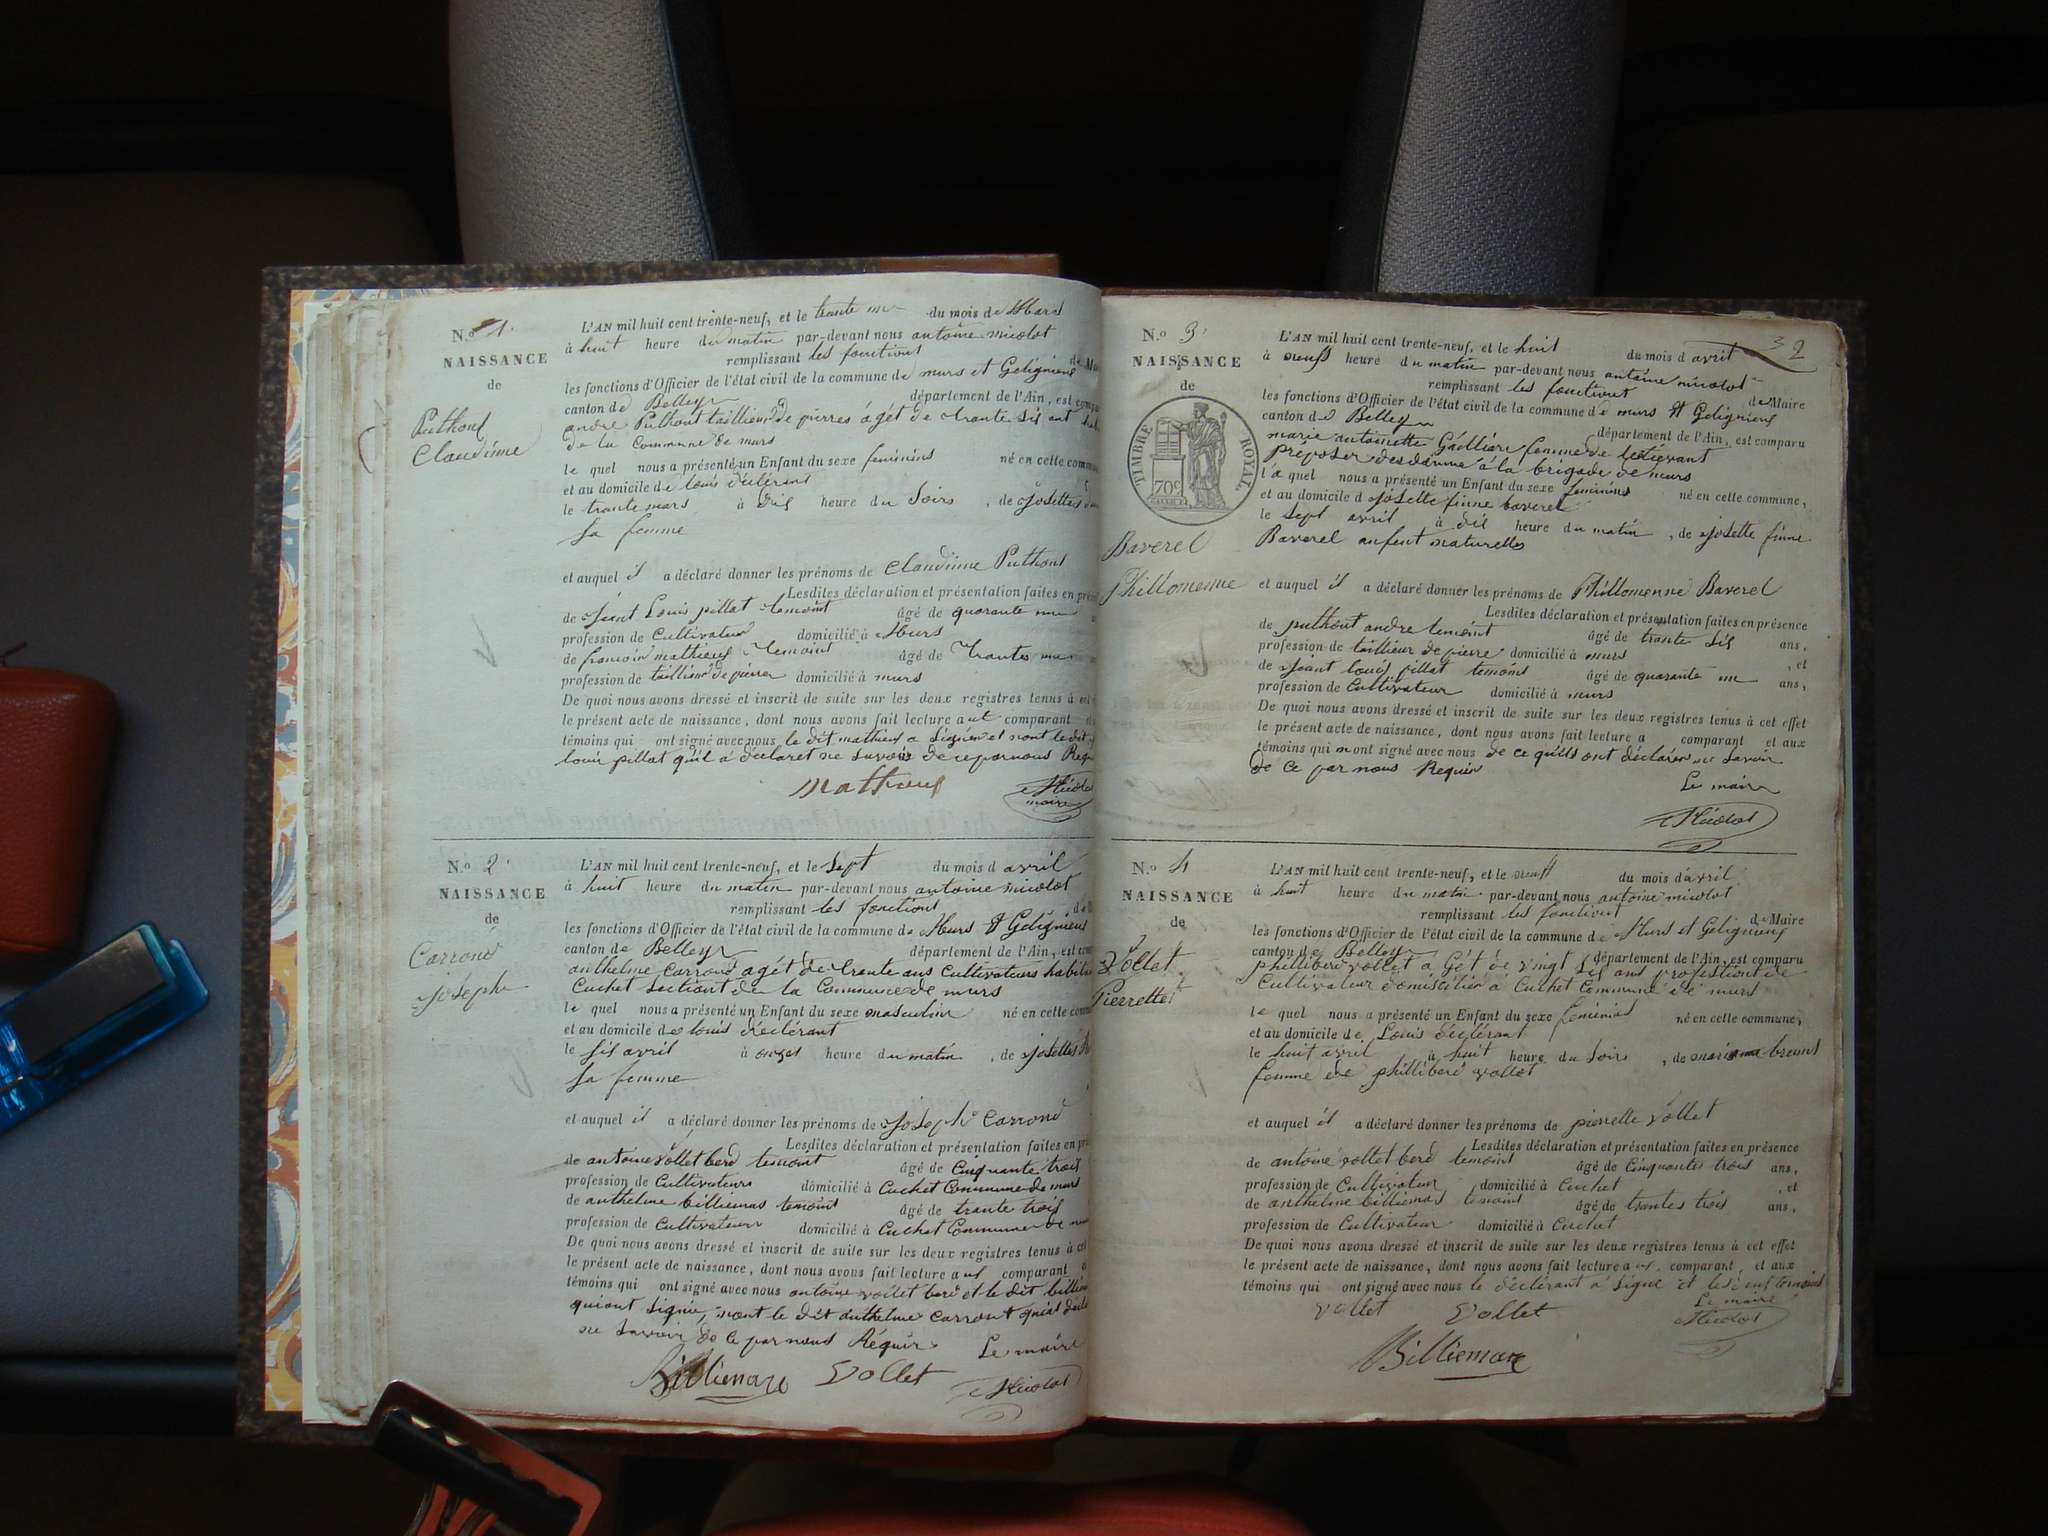 N.o 1.
NAISSANCE
de
Puthod
Claudinne
L'AN mil huit cent trente-neuf, et le trante un du mois de Mars
à huit heure du matin par-devant nous antoine micolot
remplissant les fonctions de Mai
les fonctions d'Officier de l'état civil de la commune de murs et Gelignieux
canton de Belley département de l'Ain, est compa
andré Puthout taillieur de pierres agét de trante sis ant
de la Commune de murs
le quel nous a présenté un Enfant du sexe feminins né en cette commu
et au domicile de louis déclérant
le trante mars à dis heure du Soirs , de Josettes
sa femme
et auquel il a déclaré donner les prénoms de Claudinne Puthout
Lesdites déclaration et présentation faites en pré
de Jeant Louis pillat temoint âgé de quarante un
profession de Cultivateur domicilié à Murs
de francoin mathieux temoint âgé de trantes un
profession de taillieur de pierre domicilié à murs
De quoi nous avons dressé et inscrit de suite sur les deux registres tenus à cet
le présent acte de naissance, dont nous avons fait lecture aut comparant
témoins qui ont signé avec nous le dit mathieux a Signier et nont le dit
louis pillat quil à déclaret ne Savoir de ce par nous Requi
Mathieux
Micolot
maire
N.o 2.
NAISSANCE
de
Carrond
Joseph
L'AN mil huit cent trente-neuf, et le Sept du mois d avril
à huit heure du matin par-devant nous antoine micolot
remplissant les fonctions
les fonctions d'Officier de l'état civil de la commune de Murs et Gelignieux
canton de Belley département de l'Ain, est com
anthelme Carrond agét de trante ans Cultivateurs habitan
Cuchet Sectiont de la Commune de murs
le quel nous a présenté un Enfant du sexe masculin né en cette comm
et au domicile de louis déclérant
le sis avril à onzes heure du matin , de Josettes
sa femme
et auquel il a déclaré donner les prénoms de Joseph Carrond
Lesdites déclaration et présentation faites en pré
de antoine vollet berd temoint âgé de Cinquante trois
profession de Cultivateurs domicilié à Cuchet Commune de murs
de anthelme billiemas temoint âgé de trante trois
profession de Cultivateur domicilié à Cuchet Commune de mu
De quoi nous avons dressé et inscrit de suite sur les deux registres tenus à cet
le présent acte de naissance, dont nous avons fait lecture aux comparant
témoins qui ont signé avec nous antoine vollet berd et le dit billiem
qui ont Signié, nont le dit anthelme Carront qui at décla
ne Savoir de ce par nous Réquir. Le maire
Billiemaz Vollet Micolot
3 2
N.o 3.
NAISSANCE
de
TIMBRE ROYAL
70c
Baverel
Phillomenne
L'AN mil huit cent trente-neuf, et le huit du mois d avril
à neuff heure du matin par-devant nous antoine micolot
remplissant les fonctions de Maire
les fonctions d'Officier de l'état civil de la commune de murs et Gelignieux
canton de Belley département de l'Ain, est comparu
marie antoinette Gaillière femme de
préposer des douanne à la brigade de murs
l'a quel nous a présenté un Enfant du sexe feminins né en cette commune,
et au domicile d Josette finne baverel
le Sept avril à dis heure du matin , de Josette finne
Baverel anfent naturelles
et auquel il a déclaré donner les prénoms de Phillomenne Baverel
Lesdites déclaration et présentation faites en présence
de puthout andre temoint âgé de trante sis ans,
profession de taillieur de pierre domicilié à murs , et
de Jeant louis pillat temoins âgé de quarante un ans,
profession de Cultivateur domicilié à murs
De quoi nous avons dressé et inscrit de suite sur les deux registres tenus à cet effet
le présent acte de naissance, dont nous avons fait lecture a comparant et aux
témoins qui nont signé avec nous de ce qu'ils ont déclérer ne Savoir
de ce par nous Requir
Le maire
Micolot
N.o 4
NAISSANCE
de
Vollet
Pierrette
L'AN mil huit cent trente-neuf, et le neuff du mois d avril
à huit heure du matin par-devant nous antoine micolot
remplissant les fonctions de Maire
les fonctions d'Officier de l'état civil de la commune de Murs et Gelignieux
canton de Belley département de l'Ain, est comparu
phillibere vollet a Gét de vingt sis ans profestiont de
Cultivateur domicilier à Cuchet Commune de murs
le quel nous a présenté un Enfant du sexe feminins né en cette commune,
et au domicile de Louis déclérant
le huit avril à huit heure du Soirs , de
femme de phillibere vollet
et auquel il a déclaré donner les prénoms de pierrette vollet
Lesdites déclaration et présentation faites en présence
de antoine vollet berd temoint âgé de Cinquantes trois ans,
profession de Cultivateur domicilié à Cuchet , et
de anthelme billiemas temoint âgé de trantes trois ans,
profession de Cultivateur domicilié à Cuchet
De quoi nous avons dressé et inscrit de suite sur les deux registres tenus à cet effet
le présent acte de naissance, dont nous avons fait lecture aux comparant et aux
témoins qui ont signé avec nous le déclérant a Signé et les deux temoins
Vollet Vollet Le maire
Micolot
Billiemaz